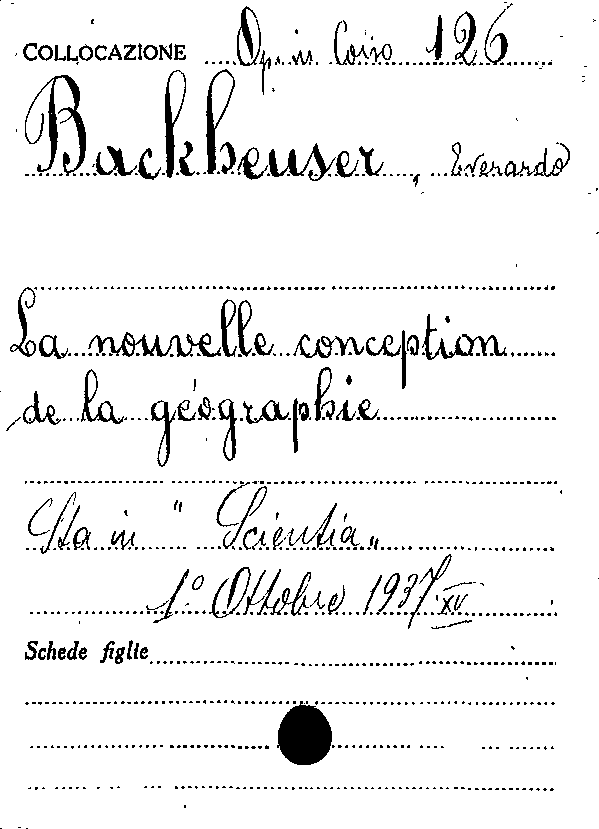 COLLOCAZIONE Op. in Corso 126
Backheuser, Everardo
La nouvelle conception
de la géographie
Sta in " Scientia „
1.° Ottobre 1937. XV
Schede figlie